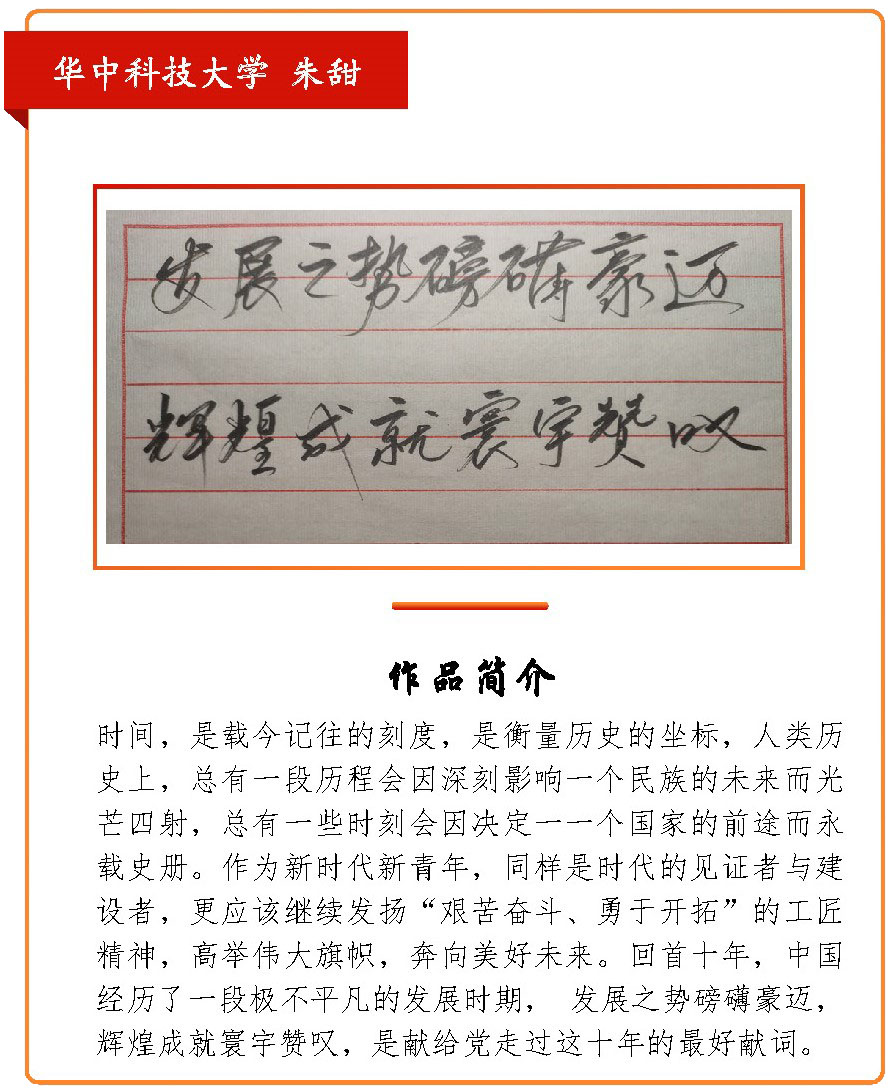 华中科技大学 朱甜
发展之势磅礴豪迈
辉煌成就寰宇赞叹
作品简介
时间，是载今记往的刻度，是衡量历史的坐标，人类历
史上，总有一段历程会因深刻影响一个民族的未来而光
芒四射，总有一些时刻会因决定一一个国家的前途而永
载史册。作为新时代新青年，同样是时代的见证者与建
设者，更应该继续发扬“艰苦奋斗、勇于开拓”的工匠
精神，高举伟大旗帜，奔向美好未来。回首十年，中国
经历了一段极不平凡的发展时期， 发展之势磅礴豪迈，
辉煌成就寰宇赞叹，是献给党走过这十年的最好献词。